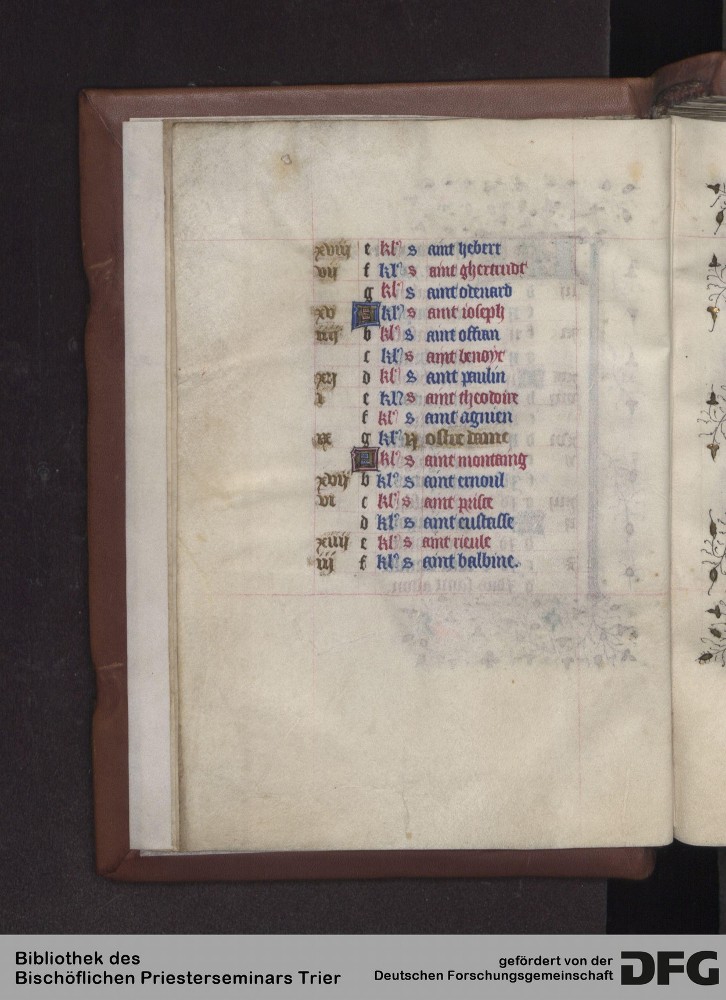 xviij e kl' s aint hebert
vij f kl' s aint ghertrudt
g kl' s aint odenard
xv A kl' s aint ioseph
iiij b kl' s aint offran
c kl' s aint benoyt
xij d kl' s aint paulin
i e kl' s aint theodoire
f kl' s aint agnien
ix g kl' N ostre dame
A kl' s aint montaing
xvij b kl' s aint ernoul
vi c kl' s aint priste
d kl' s aint eustasse
xiiij e kl' s aint rieule
iij f kl' s aint balbine.
Bibliothek des
Bischöflichen Priesterseminars Trier
gefördert von der
Deutschen Forschungsgemeinschaft DFG